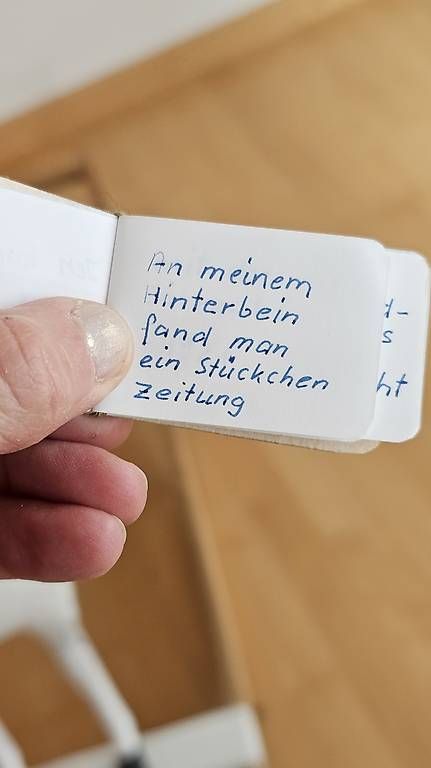 An meinem
Hinterbein
fand man
ein stückchen
Zeitung
d-
s
ht